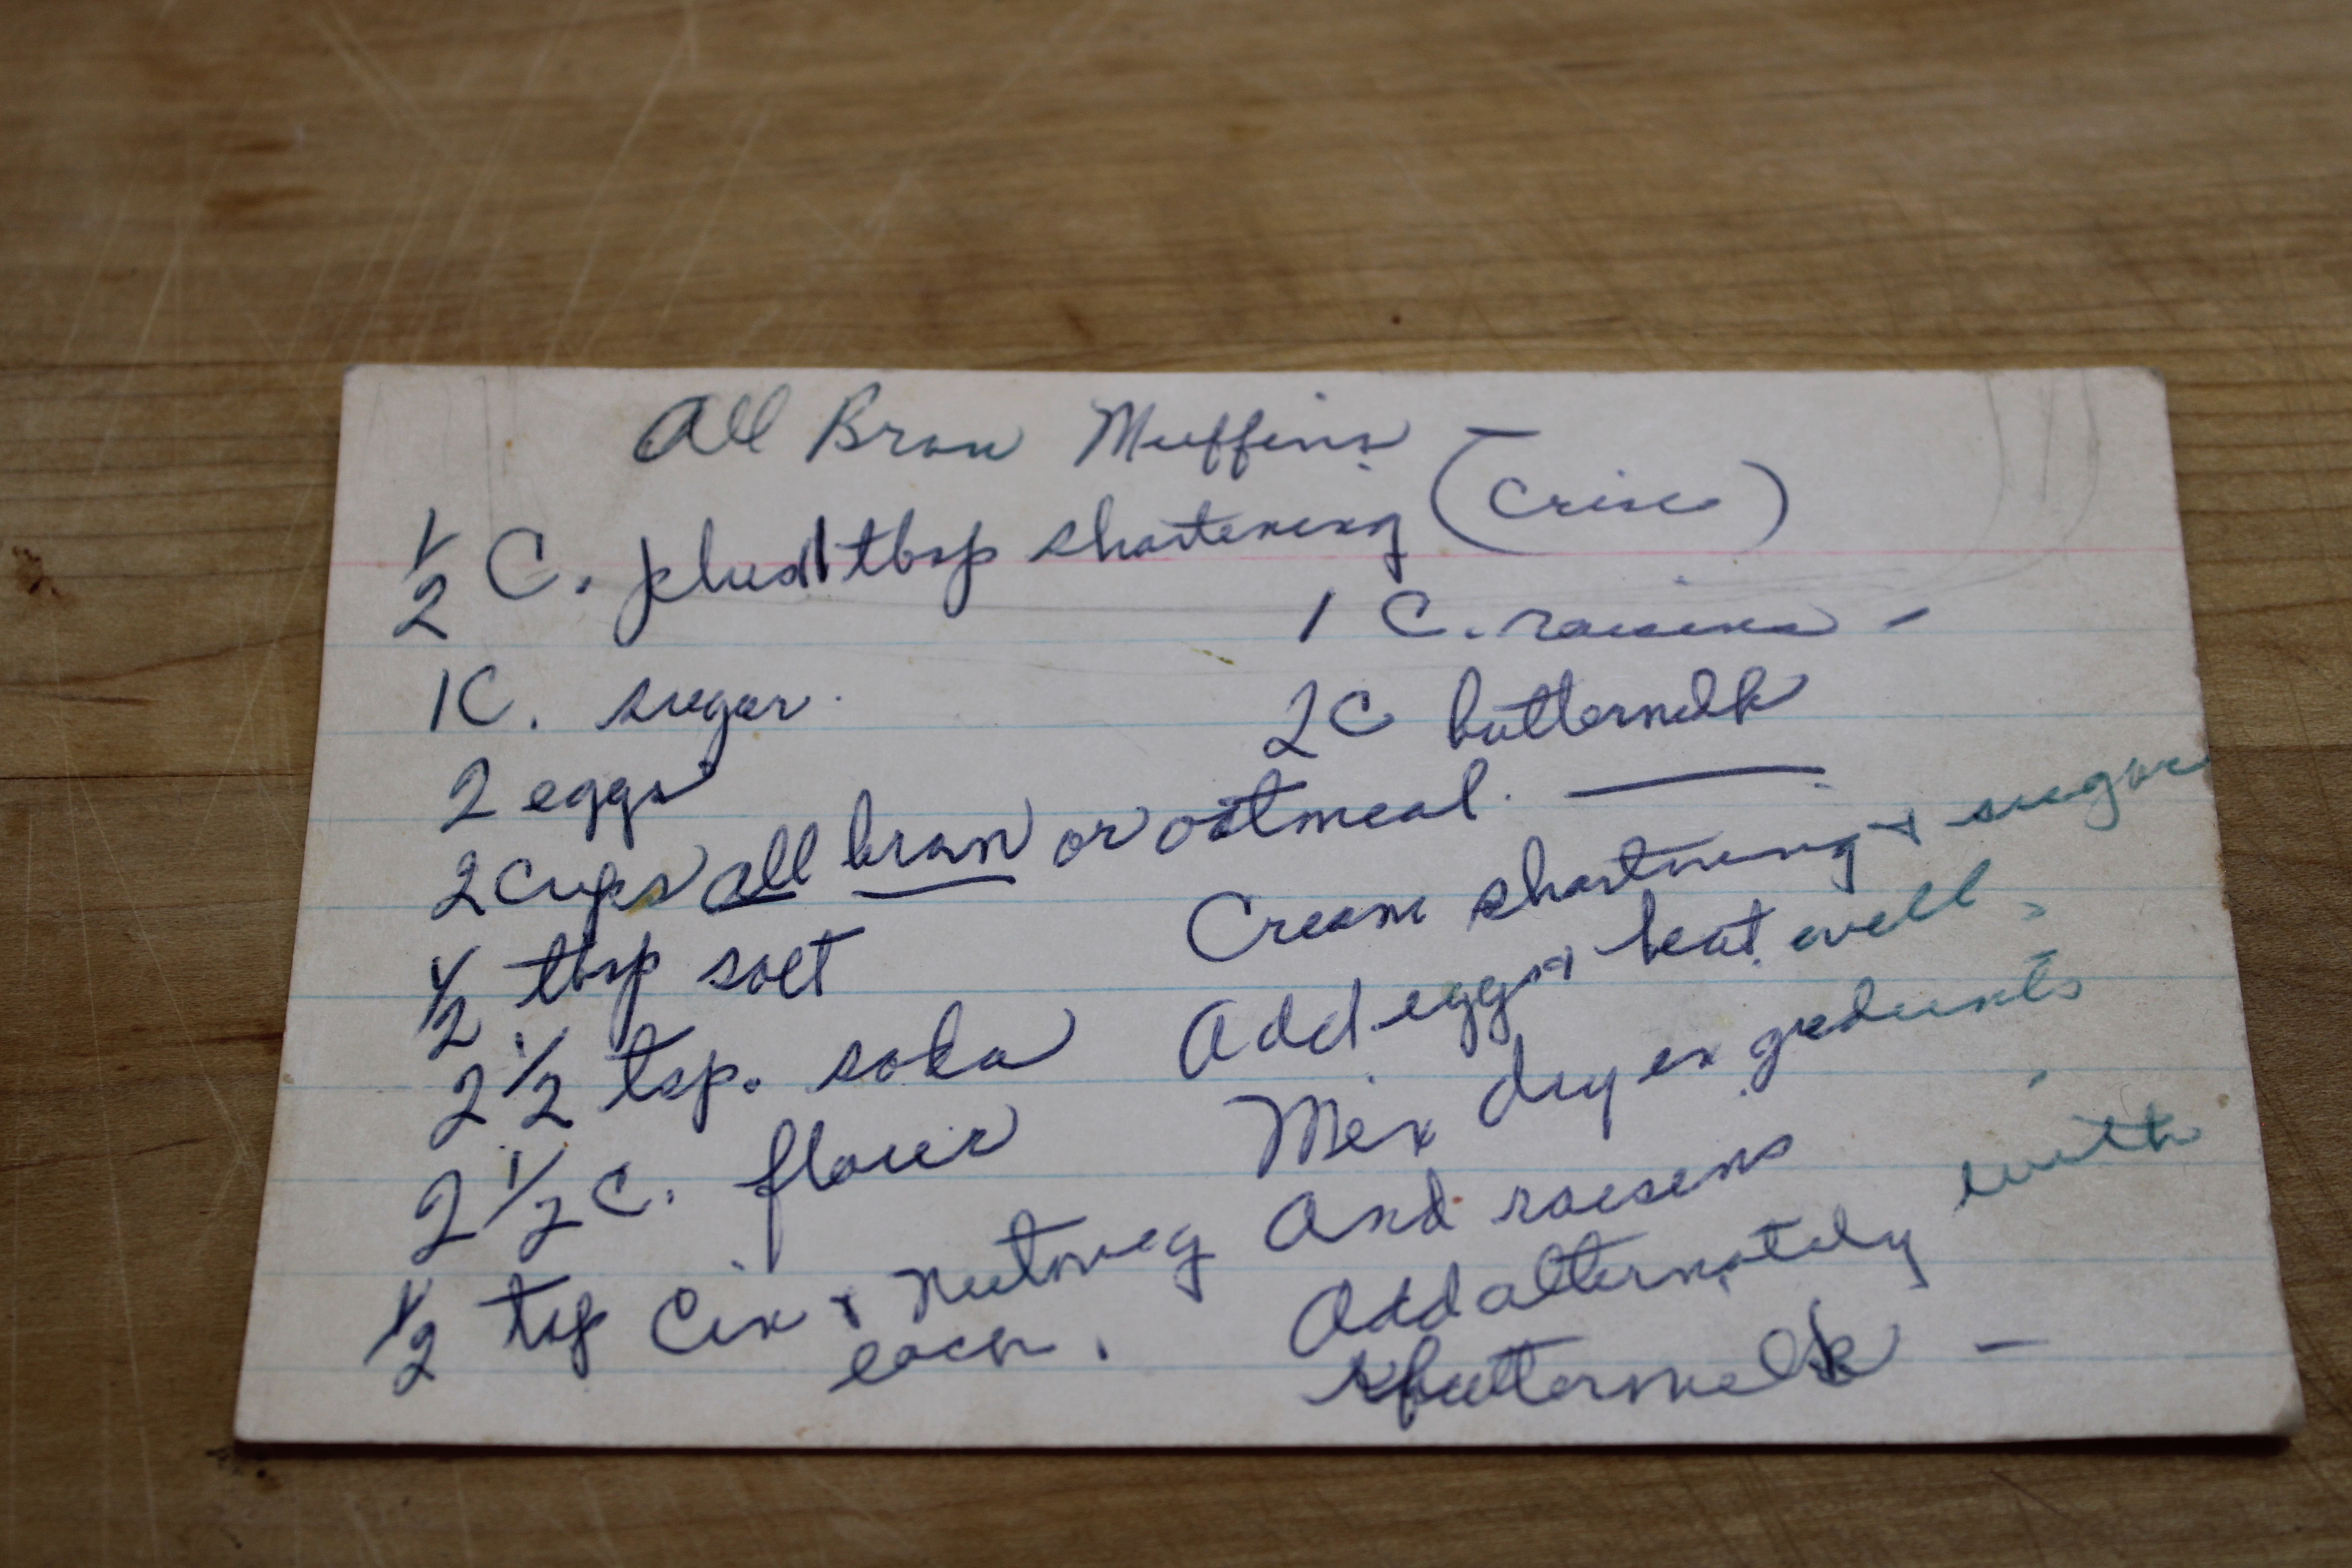 All Bran Muffins -
1/2 C. plus 1 tbsp shortening (Crisco)
1 C. raisins -
1C. sugar.
2C buttermilk
2 eggs
2 Cups all bran or oatmeal.
1/2 tbsp salt
2 1/2 tsp. soda
2 1/2 C. flour
1/2 tsp Cin & Nutmeg
each.
Cream shortning & sugar
Add eggs & beat well,
Mix dry in gredients
And raisens
Add alternately with
buttermilk -